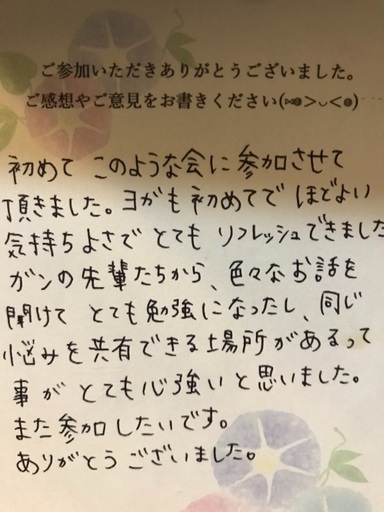 ご参加いただきありがとうございました。
ご感想やご意見をお書きください(⋈◍＞◡＜◍)
初めて このような会に参加させて
頂きました。ヨガも初めてで ほどよい
気持ちよさで とても リフレッシュできました
ガンの先輩たちから、色々なお話を
聞けて とても勉強になったし、同じ
悩みを共有できる場所があるって
事が とても心強いと思いました。
また参加したいです。
ありがとうございました。